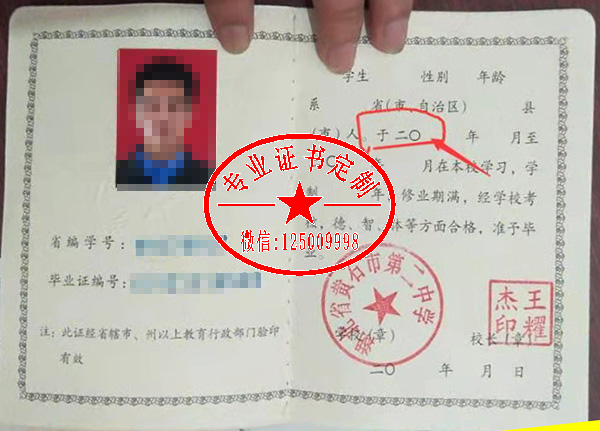 学生 性别 年龄
系 省(市、自治区) 县
(市)人。于二〇 年 月至
〇 年 月在本校学习,学
制 年,修业期满,经学校考
核,德、智、体等方面合格,准予毕
业。
专业证书定制
微信:125009998
省编学号:
毕业证编号:
注:此证经省辖市、州以上教育行政部门验印
有效
湖北省黄石市第二中学
学校(章)
校长(章)
王耀
杰印
二〇 年 月 日